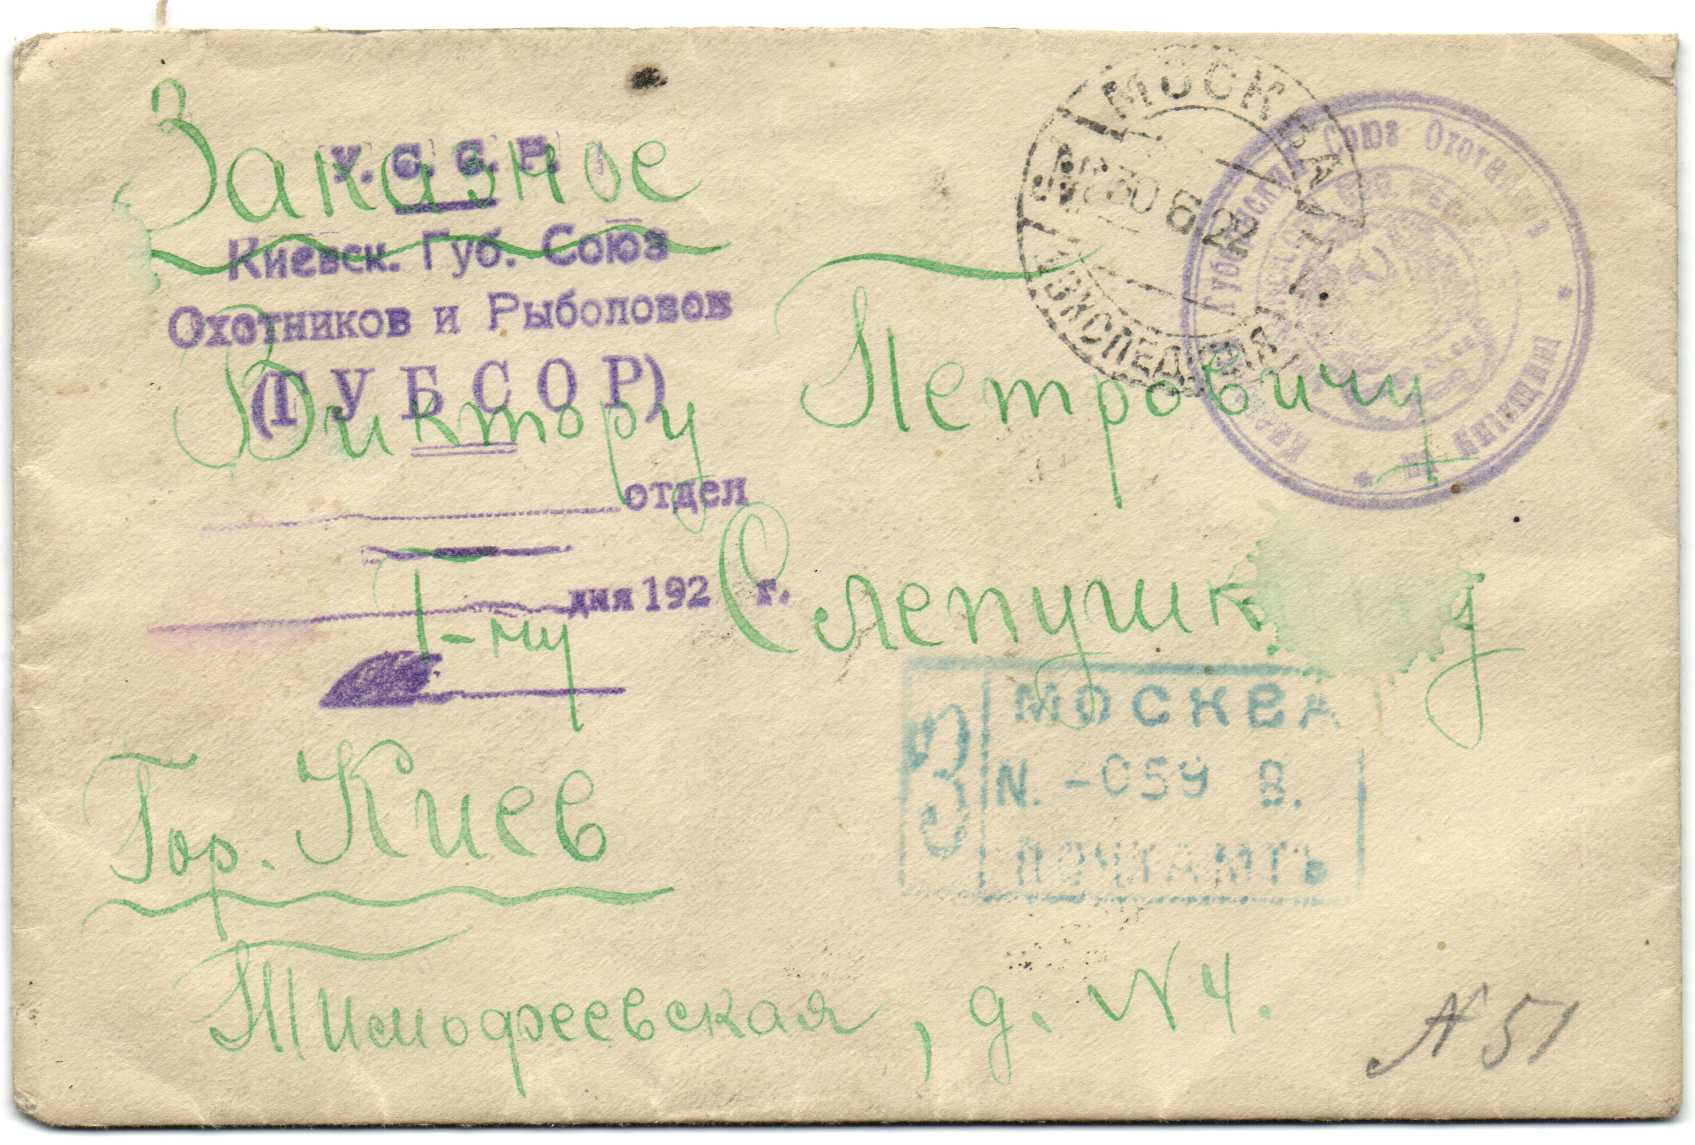 Заказное
У. С. С. Р.
Киевск. Губ. Союз
Охотников и Рыболовов
(ГУБСОР)
отдел
дня 192 г.
МОСКВА
30 6 22
ЭКСПЕДИЦИЯ
Губернский Союз Охотников
Виктору Петровичу
1-му
МОСКВА
З
N. 059 В.
ПОЧТАМТЪ
Гор. Киев
Тимофеевская, д. N 4.
N 51